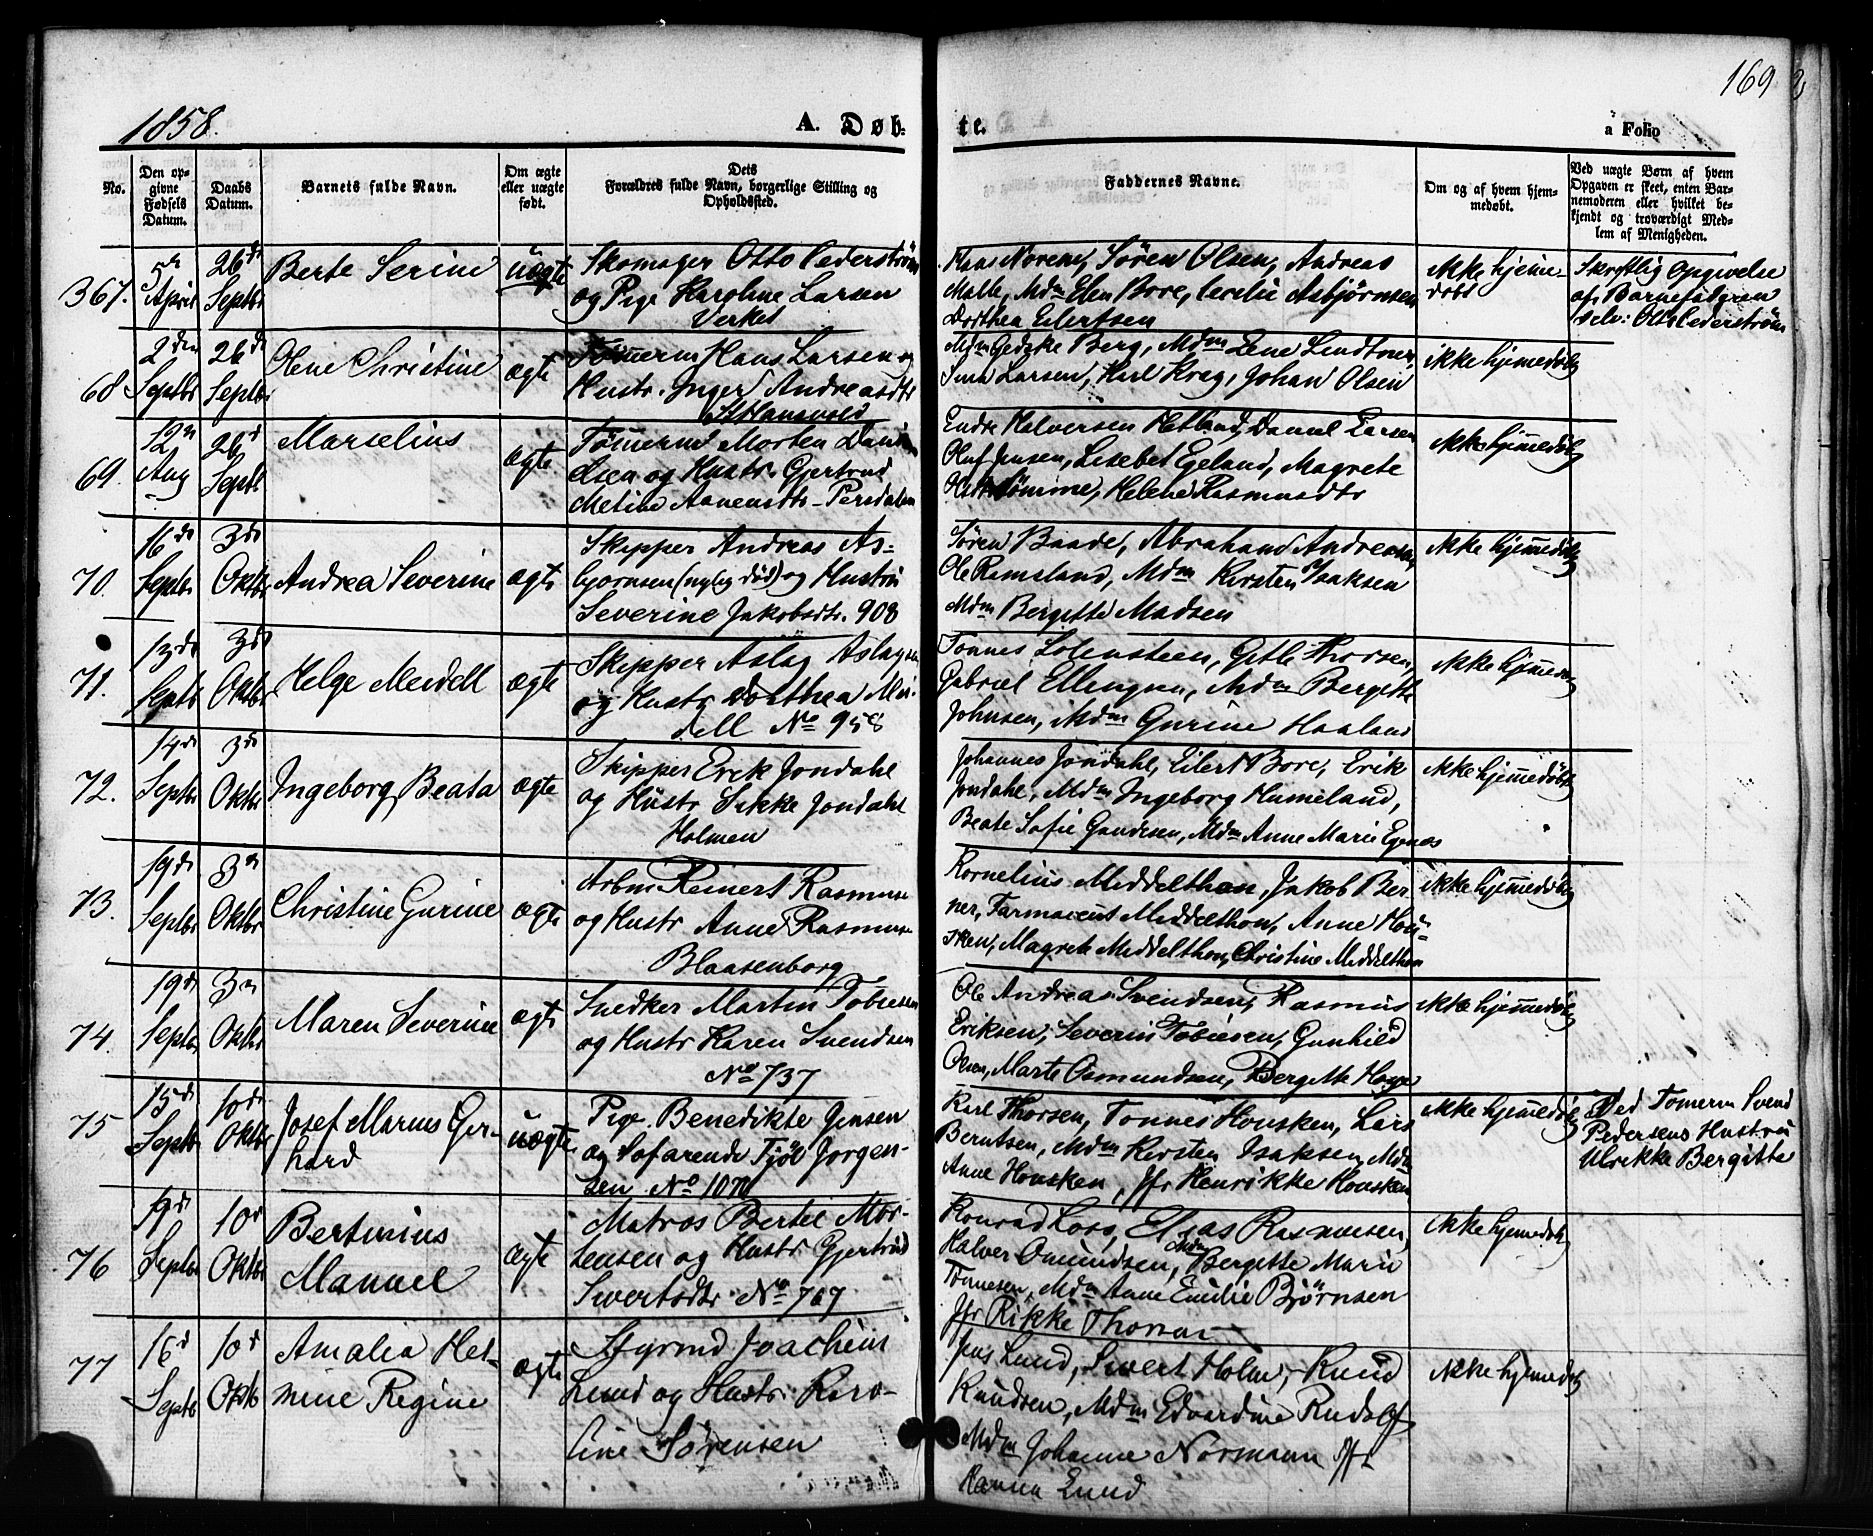 1858.
A. Døb-
te.
a Folio
169
No.
Den op-
givne
Fødsels
Datum.
Daabs
Datum.
Barnets fulde Navn.
Om ægte
eller uægte
født.
Dets
Forældres fulde Navn, borgerlige Stilling og
Opholdssted.
Faddernes Navne.
Om og af hvem hjem-
medøbt.
Ved uægte Børn af hvem
Opgaven er skeet, enten Bar-
nemoderen eller hvilket be-
kjendt og troværdigt Med-
lem af Menigheden.
367.
5te April
26de Septbr
Berte Serine
uægte
Skomager Otto Cederstrøm
og Pige Karoline Larsen
Verket
Søren Olsen, Andreas
Malle, Mdm Elen Bore, Cecelie Asbjørnsen
Dorthea Eilertsen
ikke hjeme-
døbt
Skriftlig Opgivelse
af Barnefadren
selv: Otto Cederstrøm
68
2den Septbr
26de Septbr
Olene Christine
ægte
Tømerm Hans Larsen og
Hustr. Inger Andreasdtr
Mdm Gedske Berg, Mdm Lene
Larsen, Karl Krag, Johan Olsen
ikke hjemedøbt
69.
12te Aug
26de Septb
Marselius
ægte
Tømerm Morten Dani
elsen og Hustr. Gjertrud
Metine Aanensdtr - Persdalen
Endre Halversen Hetland, Daniel Larsen
Oluf Jensen, Lisebet Egeland, Magrete
Sømme, Helene Rasmusdtr
ikke hjemedøbt
70.
16de Septbr
3de Oktbr
Andrea Severine
ægte
Skipper Andreas As-
bjornsen (nylig død) og Hustru
Severine Jakobsdtr. 908
Søren Baade, Abraham Andreasen
Ole Ramsland, Mdm Kirsten Isaksen
Mdm Bergitte Madsen
ikke hjemedøbt
71.
13de Septb
3de Oktbr
Helge Meidell
ægte
Skipper Aslag Aslagsen
og Hustr Dorthea Mei-
dell No 958
Tønnes Lolensteen, Gitle Thorsen,
Gabriel Ellingsen, Mdm Bergitte
Johnsen, Mdm Gurine Haaland
ikke hjemedøbt
72.
14de Septbr
3de Oktbr
Ingeborg Beata
ægte
Skipper Erik Jondahl
og Hustr Sikke Jondahl
Holmen
Johannes Jondahl, Eilert Bore, Erik
Jondahl, Mdm Ingeborg Humeland,
Beate Sofie Gundesen, Mdm Anne Marie Egenes
ikke hjemedøbt
73.
19de Septbr
3de Oktbr
Christine Gurine
ægte
Arbm Reinert Rasmusen
og Hustr Anne Rasmusen
Blaasenborg
Kornelius Middelthon, Jakob Ber
ner, Farmaceut Middelthon, Anne Hou-
sken, Magrete Middelthon, Christine Middelthon
ikke hjemedøbt
74.
19de Septbr
3de Oktbr
Maren Severine
ægte
Snedker Martin Tobiesen
og Hustr Karen Svendsen
No 737
Ole Andreas Svendsen, Rasmus
Eriksen, Severin Tobiesen, Gunhild
Olsen, Marte Osmundsen, Bergitte
ikke hjemedøbt
75
15de Septbr
10de Oktbr
Josef Marius Ger-
hard
uægte
Pige Benedikte Jensen
og Søfarende Tjøl Jorgen-
sen, No 1070
Karl Thorsen, Tonnes Housken, Lars
Berntsen, Mdm Kirsten Isaksen, Mdm
Anne Housken, Jfr Henrikke Housken
ikke hjemedøbt
Ved Tømerm Svend
Pedersens Hustru
Ulrikke Bergitte
76
19de Septbr
10de Oktbr
Bertinius
Manuel
ægte
Matros Bertel Mor-
tensen og Hustr Gjertrud
Sivertsdtr No 767
Konrad Loos, Elias Rasmusen,
Halvor Omundsen, Mdm Bergitte Marie
Tønnesen, Mdm Anne Emilie Bjørnsen
Jfr Rikke Thorsen
ikke hjemedøbt
77
16de Septb
10de Oktb
Amalia Her-
mine Regine
ægte
Styrmd Joachim
Lund og Hustr. Karo-
line Sørensen
Jens Lund, Sivert Holm, Knud
Knudsen, Mdm Edvardine Rudolf,
Mdm Johanne Normann Jfr
Hanna Lund
ikke hjemedøbt